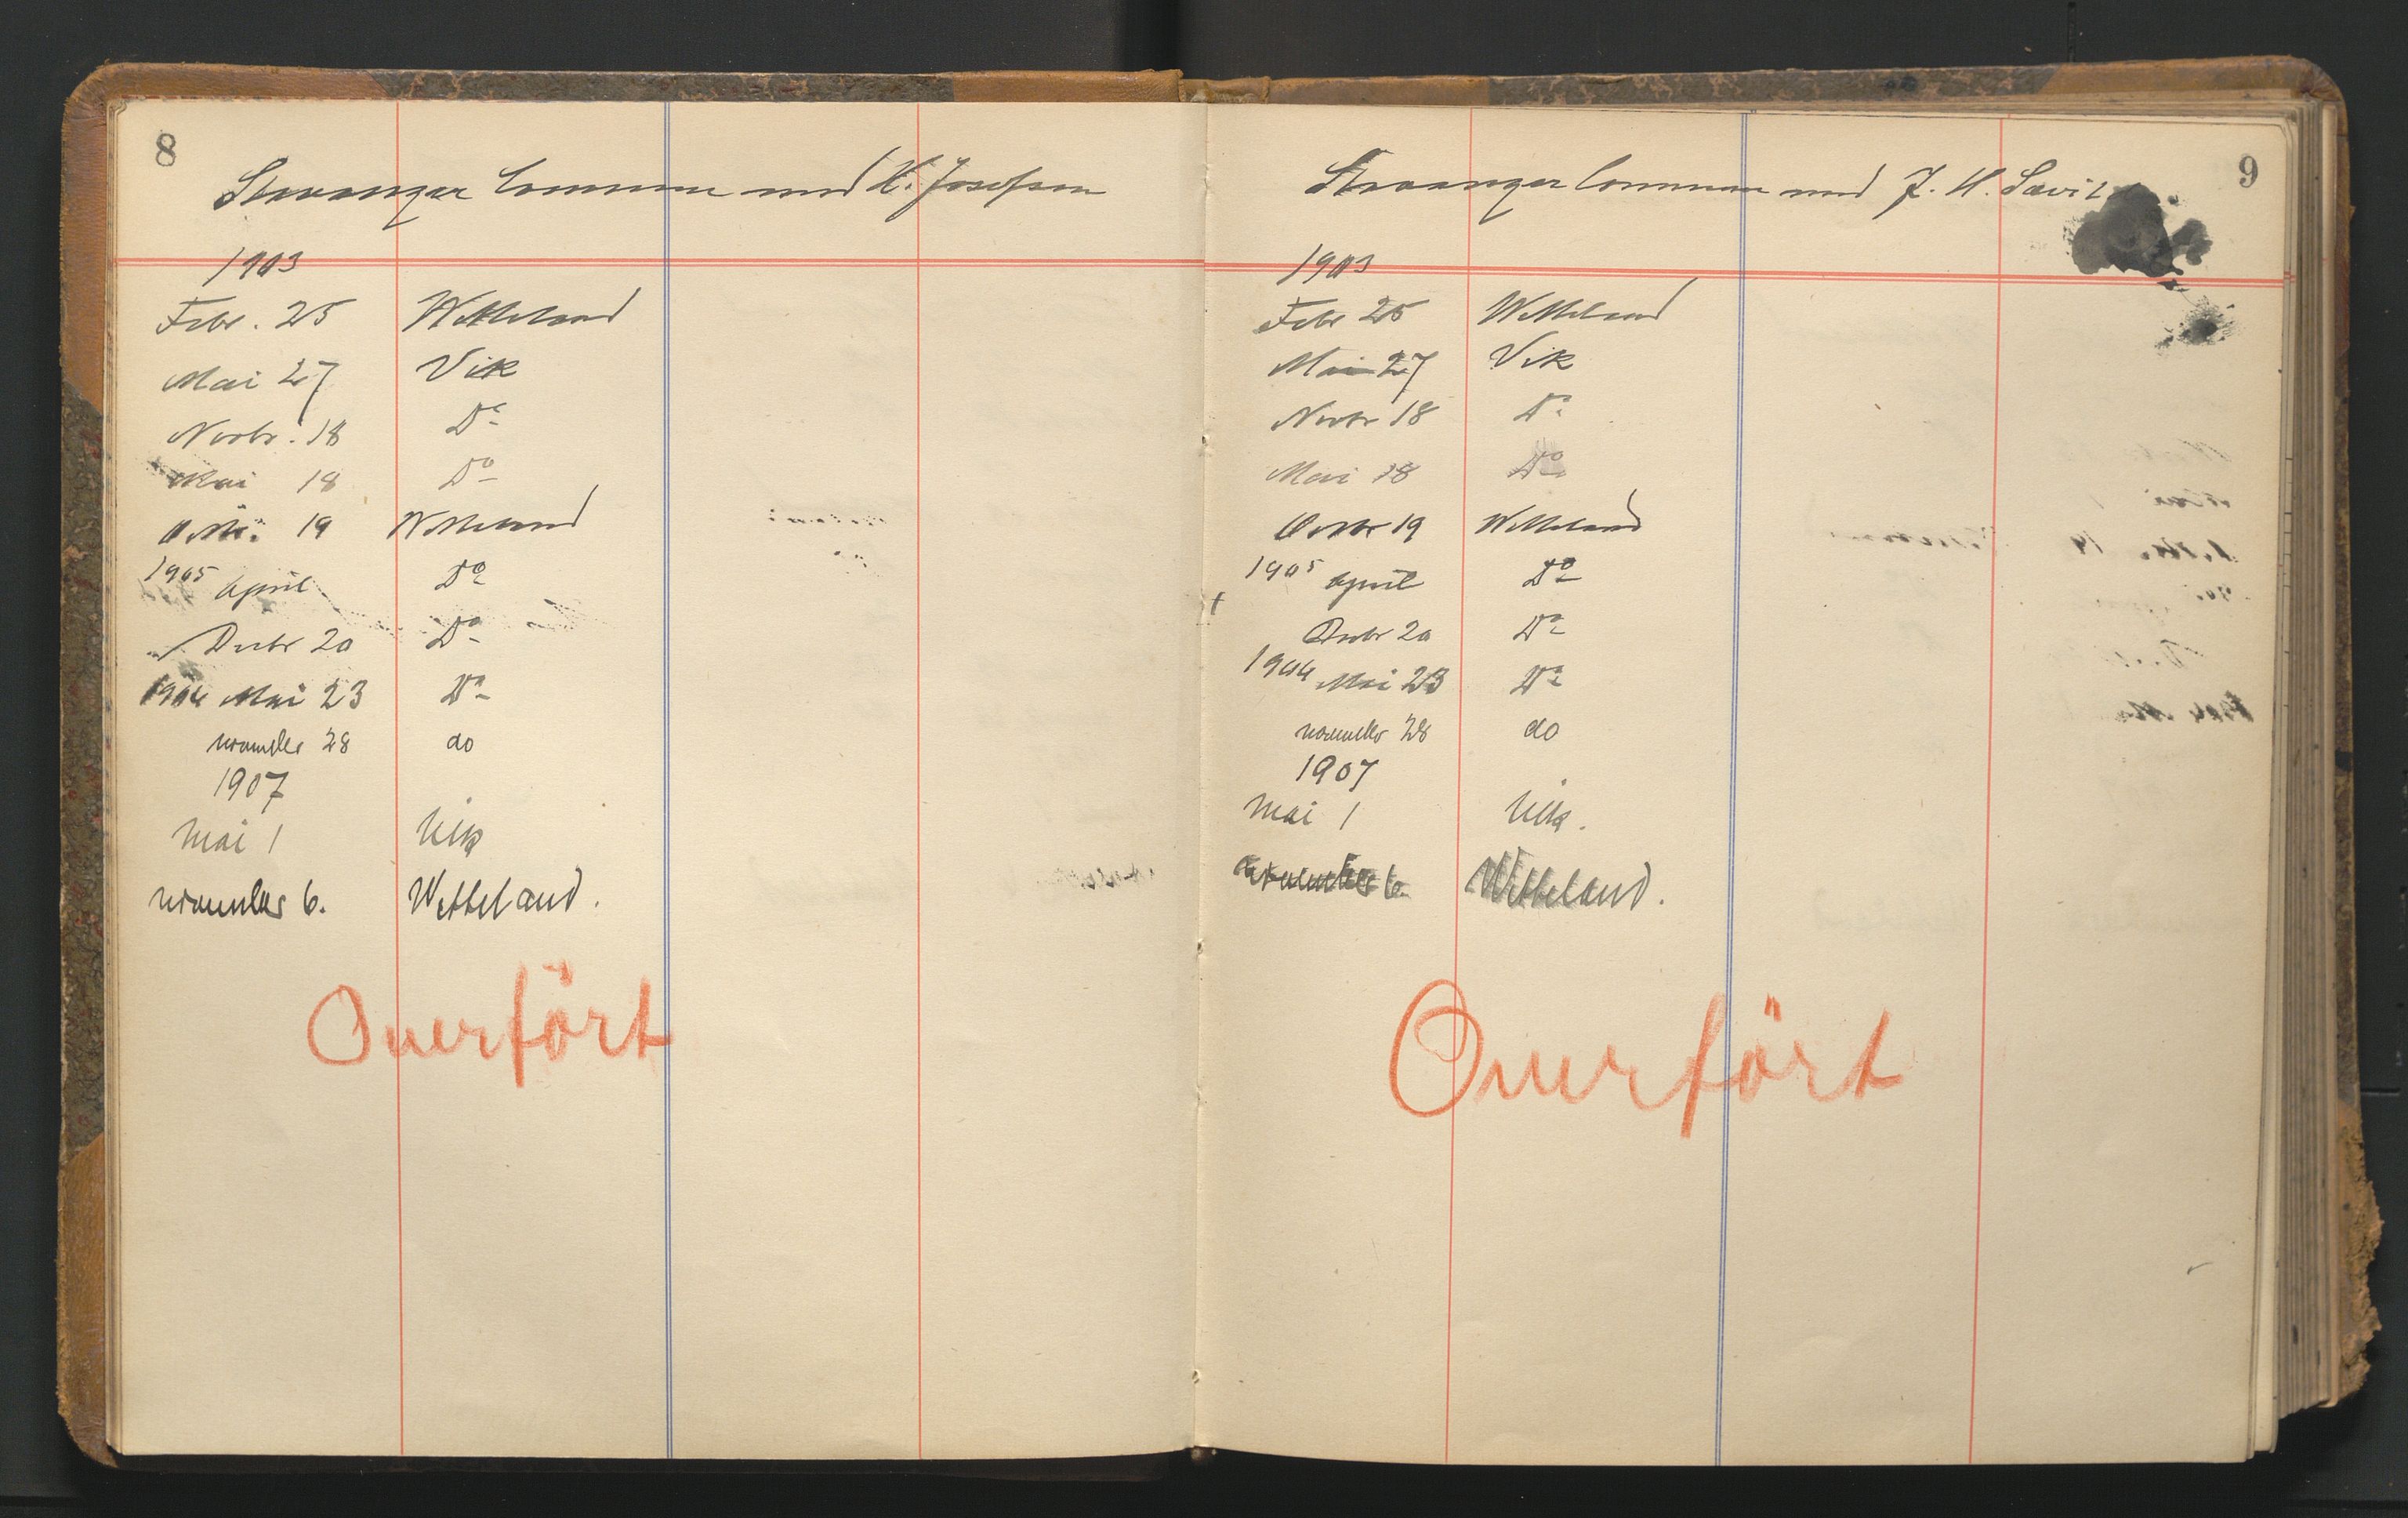 8
Stavanger Commune mod H. Josefsen
1903
Febr. 25 Wetteland
Mai 27 Vik
Novbr. 18 Do
Mai 18 Do
Octbr. 19 Wetteland
1905 April Do
Decbr 20 Do
1906 Mai 23 Do
november 28 do
1907
Mai 1 Vik
november 6. Wetteland.
Overført
9
Stavanger Commune mod J. H.
1903
Febr 25 Wetteland
Mai 27 Vik
Novbr 18 Do
Mai 18 Do
Octbr 19 Wetteland
1905 April Do
Decbr 20 Do
1906 Mai 23 Do
november 28 do
1907
Mai 1 Vik.
november 6. Wetteland.
Overført